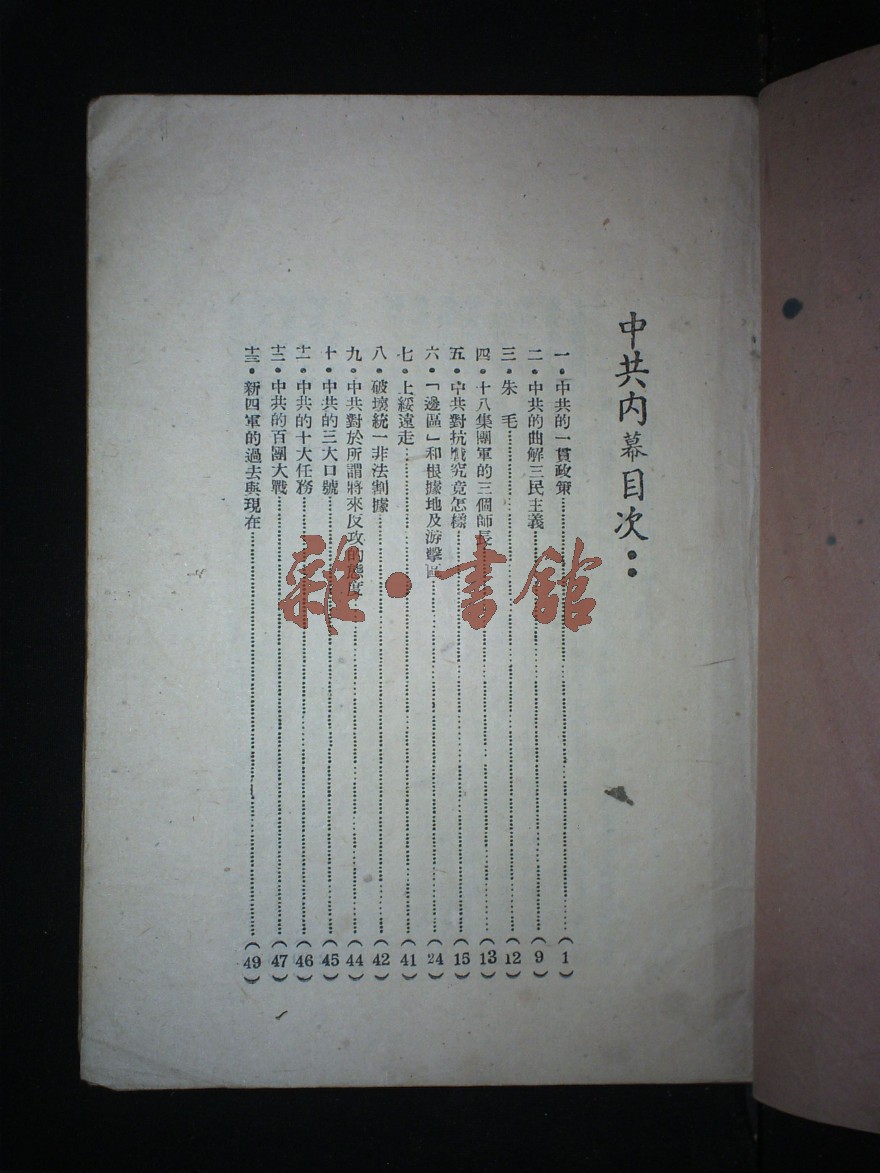 中共内幕目次：
一·中共的一貫政策……(1)
二·中共的曲解三民主義……(9)
三·朱　毛……(12)
四·十八集團軍的三個師長……(13)
五·中共對抗戰究竟怎樣……(15)
六·「邊區」和根據地及游擊區……(24)
七·上綏遠走……(41)
八·破壞統一非法割據……(42)
九·中共對於所謂將來反攻的態度……(44)
十·中共的三大口號……(45)
十一·中共的十大任務……(46)
十二·中共的百團大戰……(47)
十三·新四軍的過去與現在……(49)
雜·書館